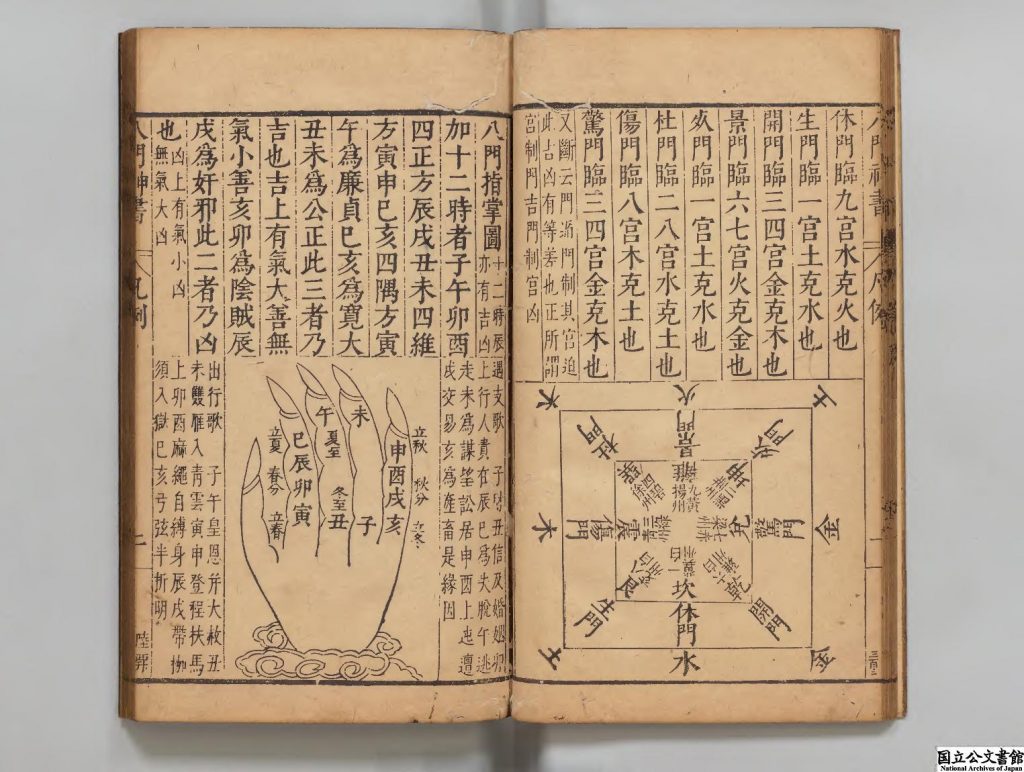 休門臨九宮水克火也
生門臨一宮土克水也
開門臨三四宮金克木也
景門臨六七宮火克金也
臨一宮土克水也
杜門臨二八宮水克土也
傷門臨八宮木克土也
驚門臨三四宮金克木也
又斷云門迫門制其宮迫
此吉凶有等差也正所謂
宮制門吉門制宮凶
火
景門
離
九
揚州
土
門
坤
金
驚門
兌
七
金
開門
乾
水
休門
坎
一
土
生門
艮
八
木
傷門
震
三
木
杜門
四
徐州
三百二
八門指掌圖
十二時辰
亦有吉凶
加十二時者子午卯酉
四正方辰戌丑未四維
方寅申巳亥四隅方寅
午為廉貞巳亥為寬大
丑未為公正此三者乃
吉也吉上有氣大善無
氣小善亥卯為陰賊辰
戌為奸邪此二者乃凶
也
凶上有氣小凶
無氣大凶
遇支歌 子
丑信及婚姻卯
上行人貴在辰巳為失脫午逃
走未為謀望訟居申酉上迍邅
戌交易亥為產畜是緣因
立秋
秋分
立冬
申酉戌亥
未
子
午
夏至
冬至
丑
巳辰卯寅
立夏
春分
立春
出行歌 子午皇恩并大赦丑
未雙雁入青雲寅申登程扶馬
上卯酉麻繩自縛身辰戌帶枷
須入獄巳亥弓弦半折明
八門神書
凡例
二
国立公文書館
National Archives of Japan